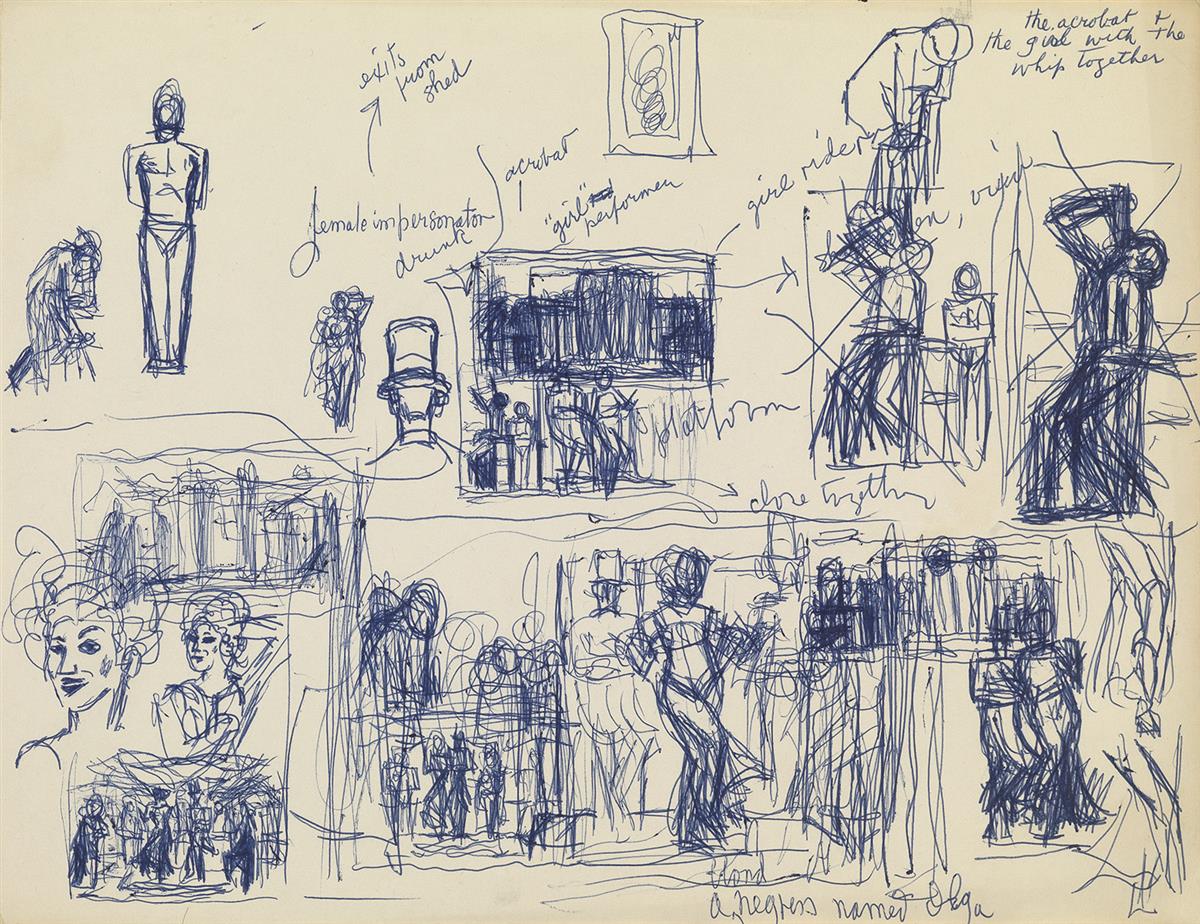 the acrobat +
the girl with the
whip together
exits
from
shed
acrobat
female impersonator
drunk
"girl"
performer
girl rider
platform
close together
blond
a negress named Olga